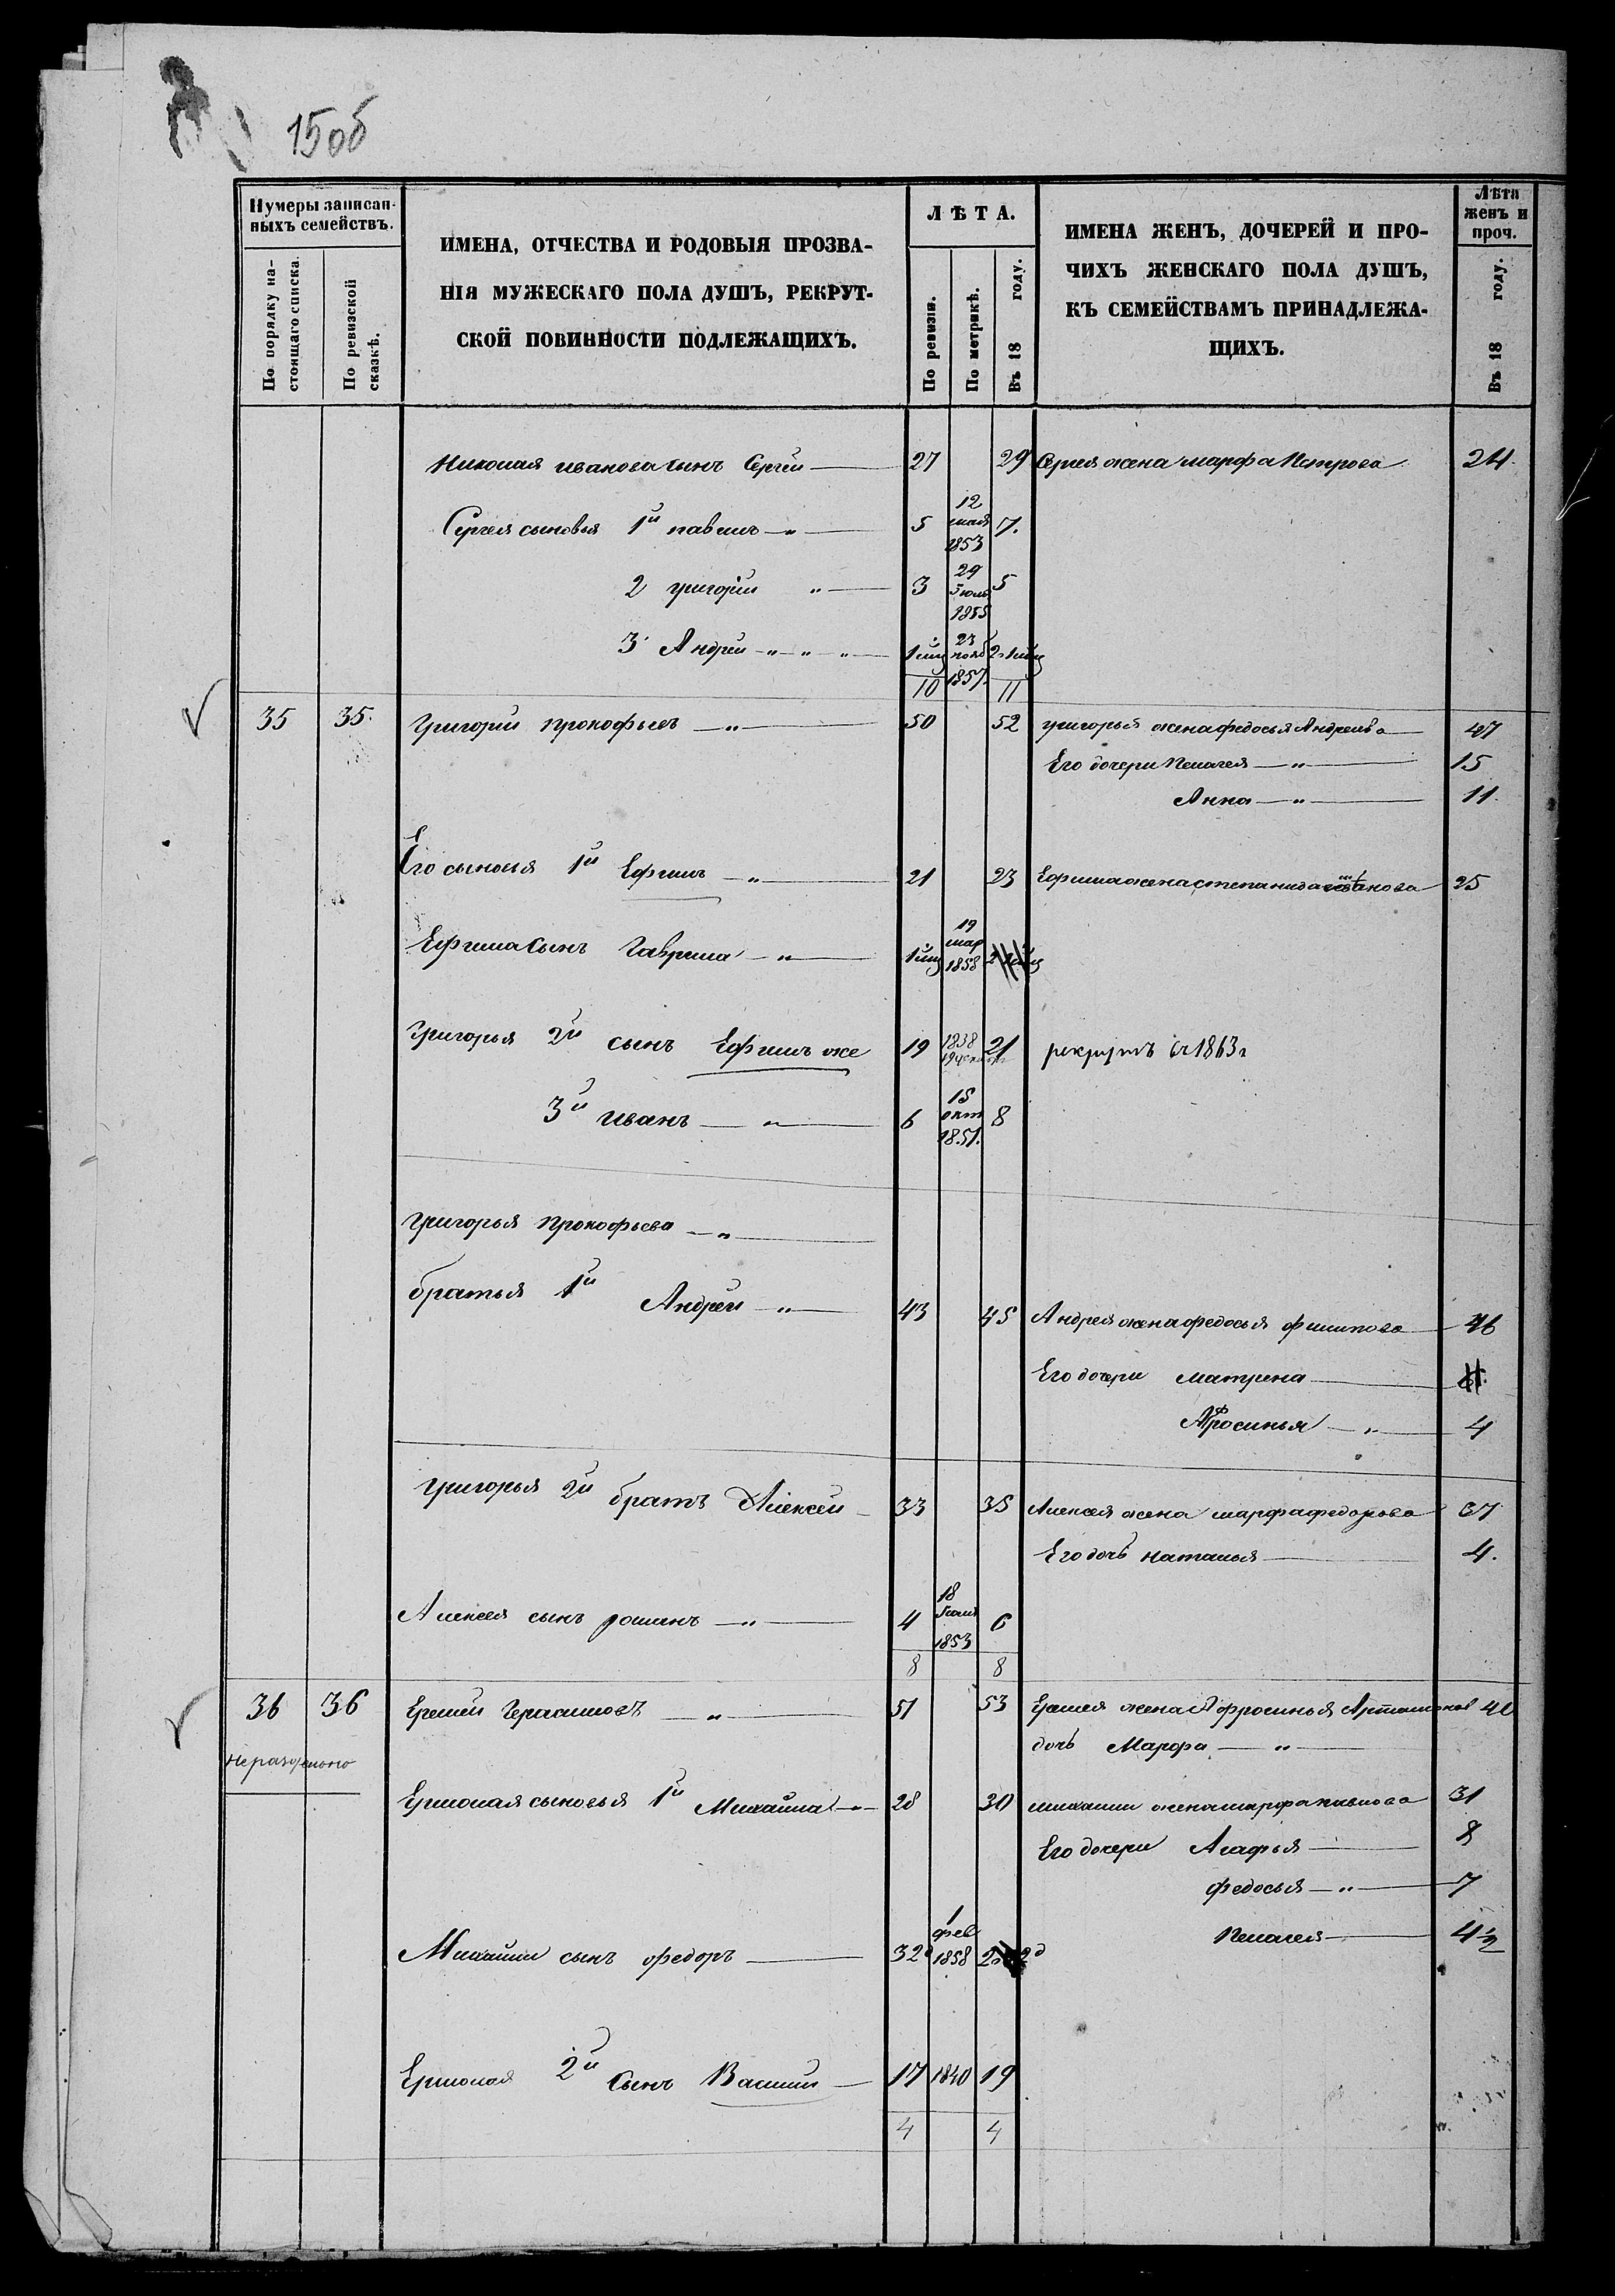 15об
Нумеры записан-
ныхъ семействъ.
По порядку на-
стоящаго списка.
По ревизской
сказкѣ.
ИМЕНА, ОТЧЕСТВА И РОДОВЫЯ ПРОЗВА-
НІЯ МУЖЕСКАГО ПОЛА ДУШЪ, РЕКРУТ-
СКОЙ ПОВИННОСТИ ПОДЛЕЖАЩИХЪ.
ЛѢТА.
По ревизіи.
По метрикѣ.
Въ 18 году.
ИМЕНА ЖЕНЪ, ДОЧЕРЕЙ И ПРО-
ЧИХЪ ЖЕНСКАГО ПОЛА ДУШЪ,
КЪ СЕМЕЙСТВАМЪ ПРИНАДЛЕЖА-
ЩИХЪ.
Лѣта
женъ и
проч.
Въ 18 году.
Николая иванова сынъ Сергей 27 29 Сергея жена марфа Петрова 24
Сергея сыновья 1й павелъ 5 12 мая 1853 7.
2 григорій 3 29 Іюль 1855 5
3 Андрей 23 нояб 1857
10 11
35 35. Григорій прокофьевъ 50 52 григорья жена федосья Андреева 47
Его дочери Пелагея 15
Анна 11
Его сыновья 1й Ефимъ 21 23 Ефима жена степанида 25
Ефима сынъ Гаврила 19 мар 1858
Григорья 2й сынъ Ефимъ же 19 1838 21 рекрутъ съ 1863г
3й иванъ 6 15 окт 1851. 8
григорья прокофьева
братья 1й Андрей 43 45 Андрея жена федосья филипова 46
Его дочери матрена
Афросинья 4
григорья 2й братъ Алексей 33 35 Алексея жена марфа федорова 37
Его дочь наталья 4.
Алексея сынъ романъ 4 18 1853 6
8 8
36 36 Ермей Герасимовъ 51 53 Ермея жена Афросинья Артамонов
дочь Марфа
нераздельно
Ермолая сыновья 1й Михайла 28 30 михайлы жена марфа павлова 31
Его дочери Агафья 8
федосья 7
Пелагея 4½
Михайлы сынъ федоръ 1 фев 1858
Ермолая 2й сынъ Василий 17 1840 19
4 4